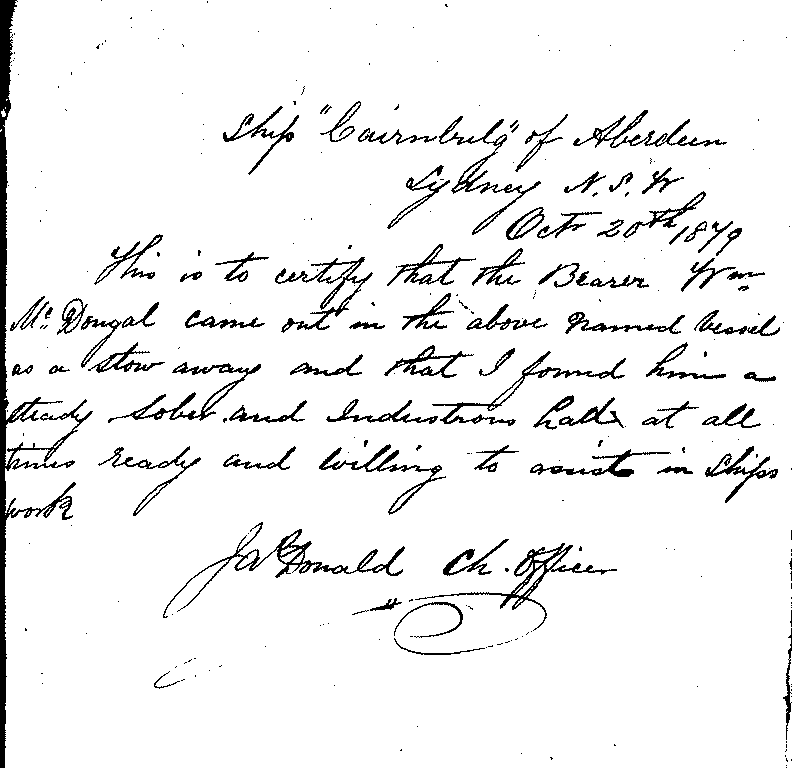 Ship "Cairnbulg" of Aberdeen
Sydney N. S. W
Octr 20th 1879
This is to certify that the Bearer Wm
Mc Dougal came out in the above named vessel
as a stow away and that I found him a
steady sober and Industrous at all
times ready and willing to assist in ships
work
McDonald Ch. Officer